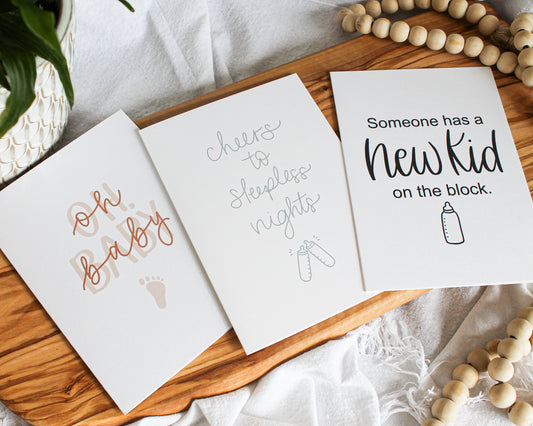 oh
OH,
baby
BABY
cheers
to
sleepless
nights
Someone has a
New Kid
on the block.